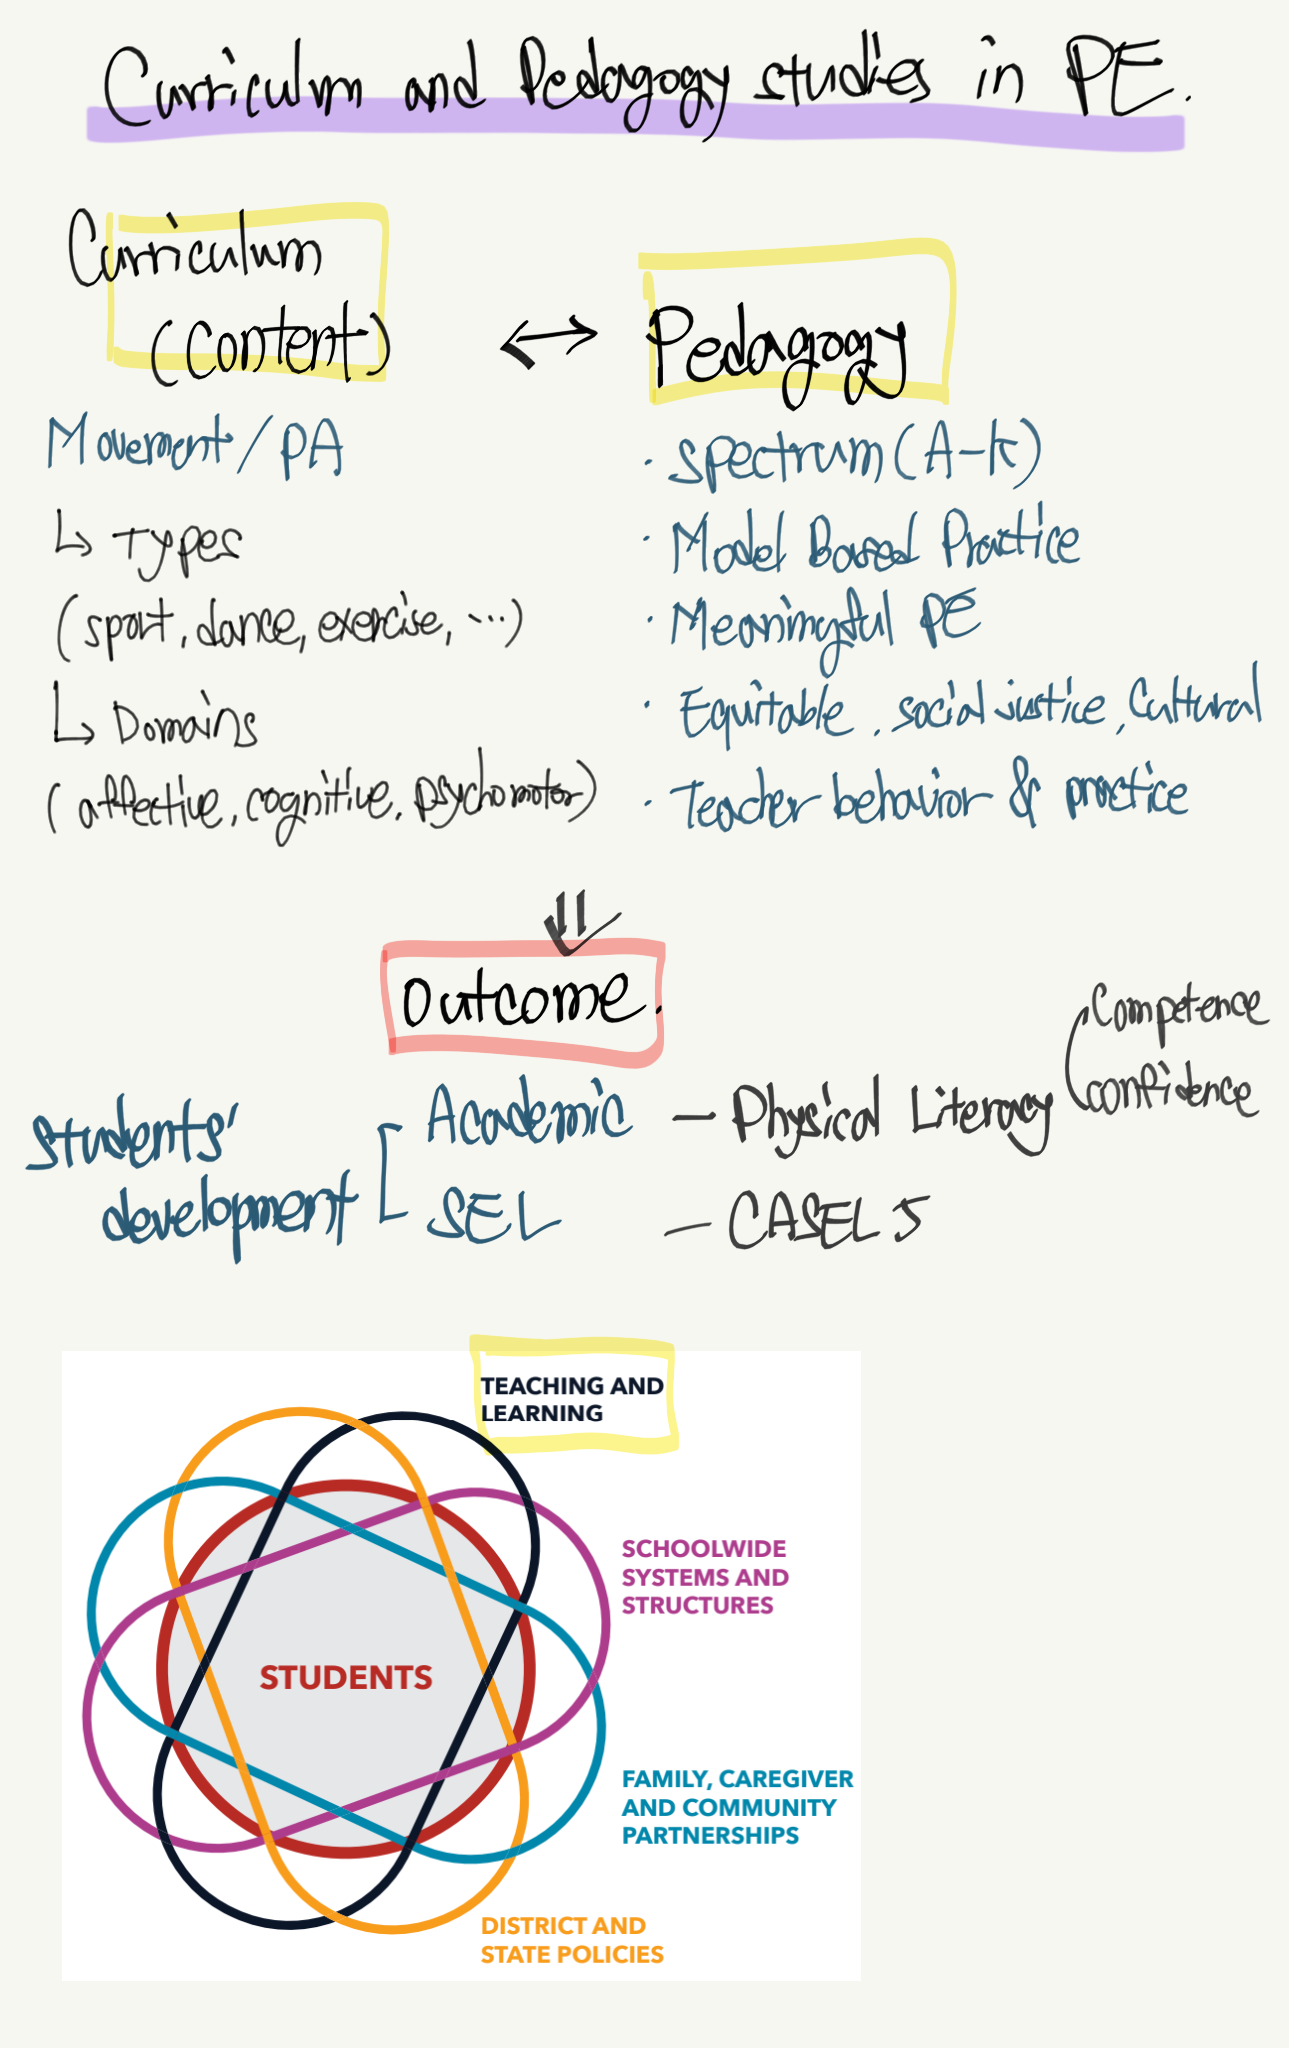 Curriculum and Pedagogy studies in PE.
Curriculum
(Content)
↔ Pedagogy
Movement/PA
↳ Types
(sport, dance, exercise, ...)
↳ Domains
(affective, cognitive, psychomotor)
· Spectrum (A-K)
· Model Based Practice
· Meaningful PE
· Equitable, social justice, Cultural
· Teacher behavior & practice
Outcome.
Students'
development
Academic - Physical Literacy
Competence
confidence
SEL - CASEL 5
TEACHING AND
LEARNING
SCHOOLWIDE
SYSTEMS AND
STRUCTURES
STUDENTS
FAMILY, CAREGIVER
AND COMMUNITY
PARTNERSHIPS
DISTRICT AND
STATE POLICIES